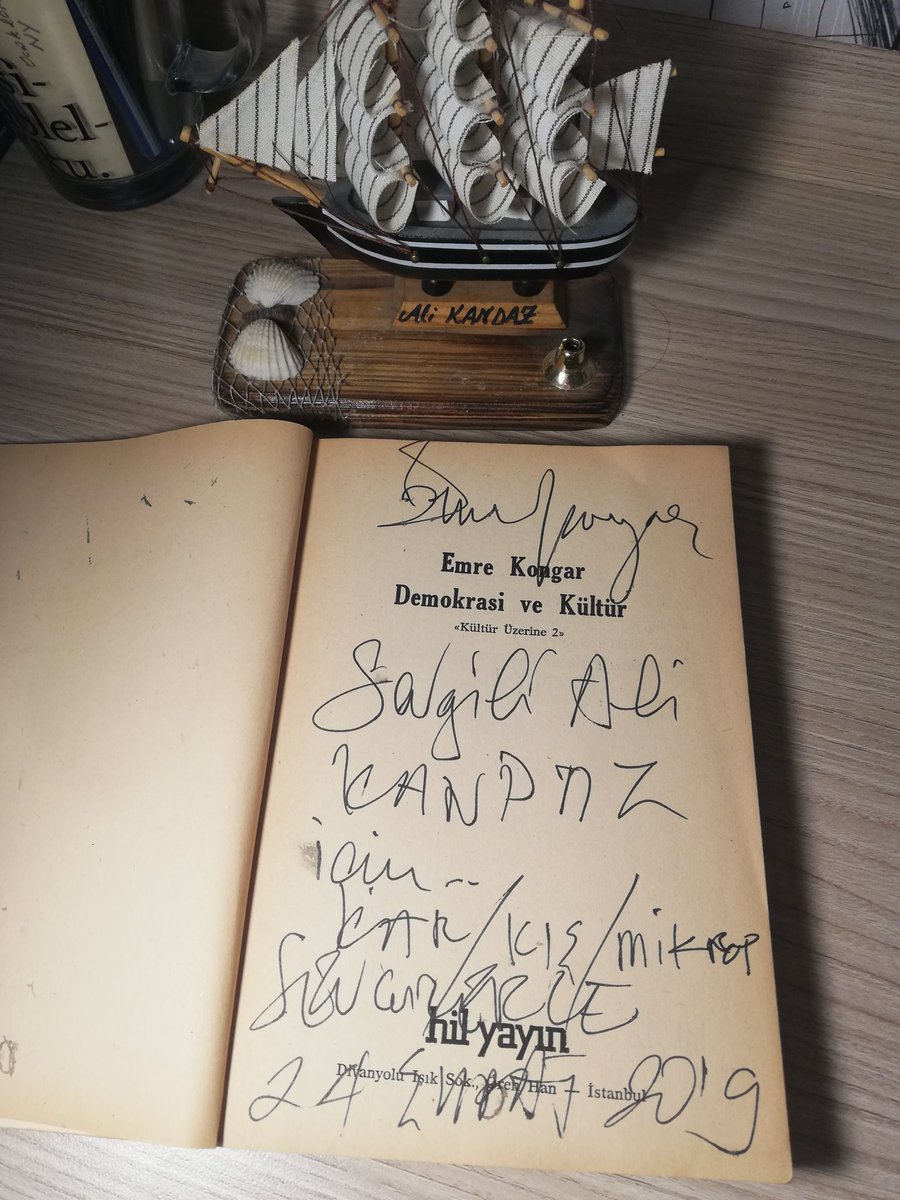 NY
lel-
ku.
Ali KANDAZ
Emre Kongar
Emre Kongar
Demokrasi ve Kültür
«Kültür Üzerine 2»
Sevgili Ali
KANDAZ
için..
KAR/KIŞ/MİKROP
hil yayın
Divanyolu Işık Sok., Han — İstanbul
24 2019